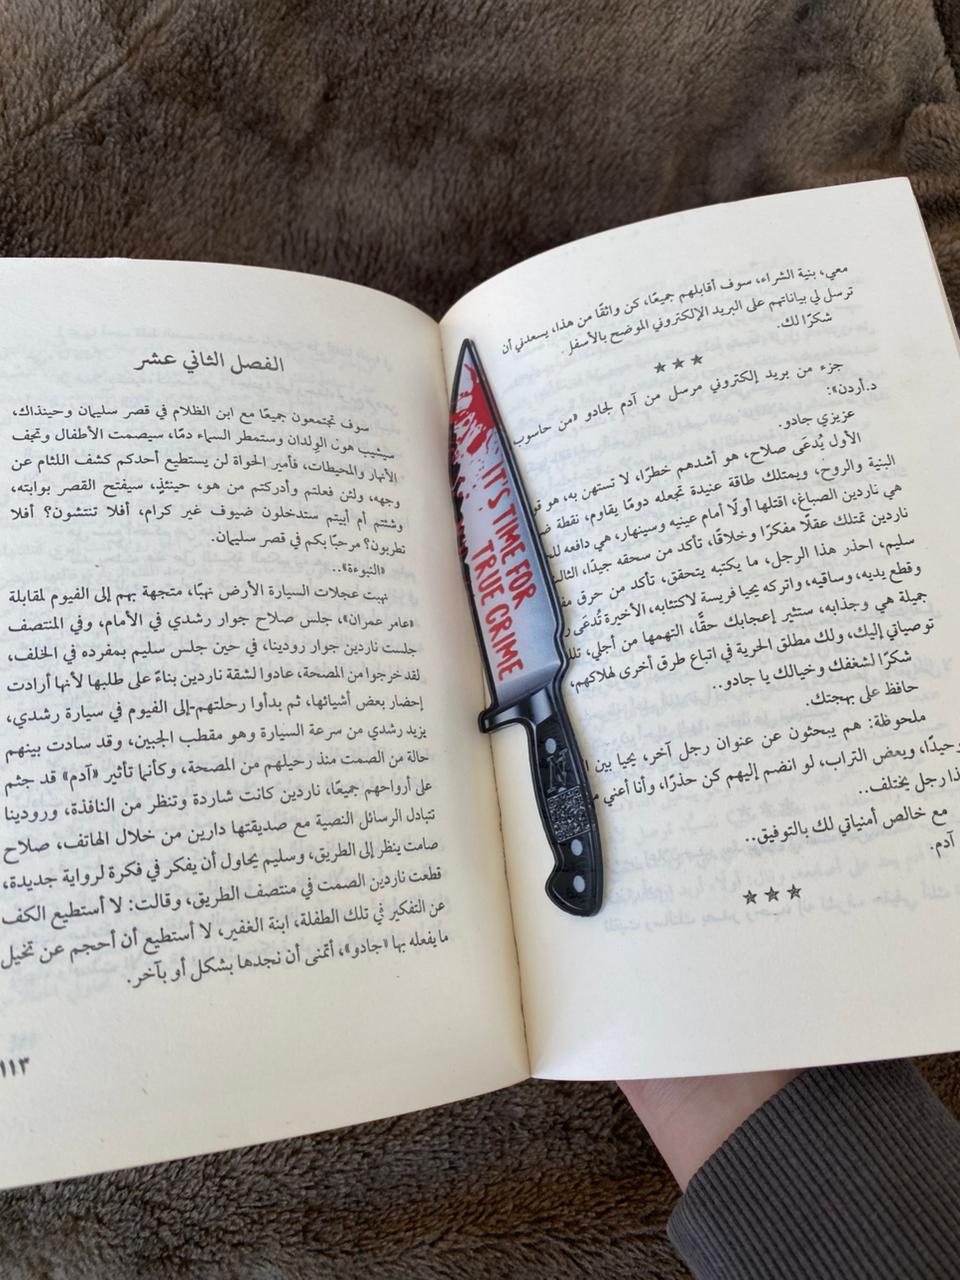 معي، بنية الشراء، سوف أقابلهم جميعًا، كن واثقًا من هذا، يسعدني أن
ترسل لي بياناتهم على البريد الإلكتروني الموضح بالأسفل.
شكرًا لك.
★★★
جزء من بريد إلكتروني مرسل من آدم لجادو «من حاسوب
د.أردن»:
عزيزي جادو.
الأول يُدعَى صلاح، هو أشدهم خطرًا، لا تستهن به، هو
البنية والروح، ويمتلك طاقة عنيدة تجعله دومًا يقاوم، نقطة
هي ناردين الصباغ، اقتلها أولًا أمام عينيه وسينهار، هي دافعه
ناردين تمتلك عقلًا مفكرًا وخلاقًا، تأكد من سحقه جيدًا،
سليم، احذر هذا الرجل، ما يكتبه يتحقق، تأكد من حرق
وقطع يديه، وساقيه، واتركه يحيا فريسة لاكتئابه، الأخيرة تُدعَى
جميلة هي وجذابه، ستثير إعجابك حقًّا، التهمها من أجلي،
توصياتي إليك، ولك مطلق الحرية في اتباع طرق أخرى لهلاكهم،
شكرًا لشغفك وخيالك يا جادو..
حافظ على بهجتك.
ملحوظة: هم يبحثون عن عنوان رجل آخر، يحيا بين
وحيدًا، وبعض التراب، لو انضم إليهم كن حذرًا، وأنا أعني
رجل يختلف..
مع خالص أمنياتي لك بالتوفيق..
آدم.
★★★
IT'S TIME FOR
TRUE CRIME
N
الفصل الثاني عشر
سوف تجتمعون جميعًا مع ابن الظلام في قصر سليمان وحينذاك،
سيشيب هون الوِلدان وستمطر السماء دمًا، سيصمت الأطفال وتجف
الأنهار والمحيطات، فأمير الحواة لن يستطيع أحدكم كشف اللثام عن
وجهه، ولئن فعلتم وأدركتم من هو، حينئذٍ، سيفتح القصر بوابته،
وشئتم أم أبيتم ستدخلون ضيوف غير كرام، أفلا تنتشون؟ أفلا
تطربون؟ مرحبًا بكم في قصر سليمان.
«النبوءة»..
نهبت عجلات السيارة الأرض نهبًا، متجهة بهم إلى الفيوم لمقابلة
«عامر عمران»، جلس صلاح جوار رشدي في الأمام، وفي المنتصف
جلست ناردين جوار رودينا، في حين جلس سليم بمفرده في الخلف،
لقد خرجوا من المصحة، عادوا لشقة ناردين بناءً على طلبها لأنها أرادت
إحضار بعض أشيائها، ثم بدأوا رحلتهم-إلى الفيوم في سيارة رشدي،
يزيد رشدي من سرعة السيارة وهو مقطب الجبين، وقد سادت بينهم
حالة من الصمت منذ رحيلهم من المصحة، وكأنما تأثير «آدم» قد جثم
على أرواحهم جميعًا، ناردين كانت شاردة وتنظر من النافذة، ورودينا
تبادل الرسائل النصية مع صديقتها دارين من خلال الهاتف، صلاح
صامت ينظر إلى الطريق، وسليم يحاول أن يفكر في فكرة لرواية جديدة،
قطعت ناردين الصمت في منتصف الطريق، وقالت: لا أستطيع الكف
عن التفكير في تلك الطفلة، ابنة الغفير، لا أستطيع أن أحجم عن تخيل
ما يفعله بها «جادو»، أتمنى أن نجدها بشكل أو بآخر.
١١٣